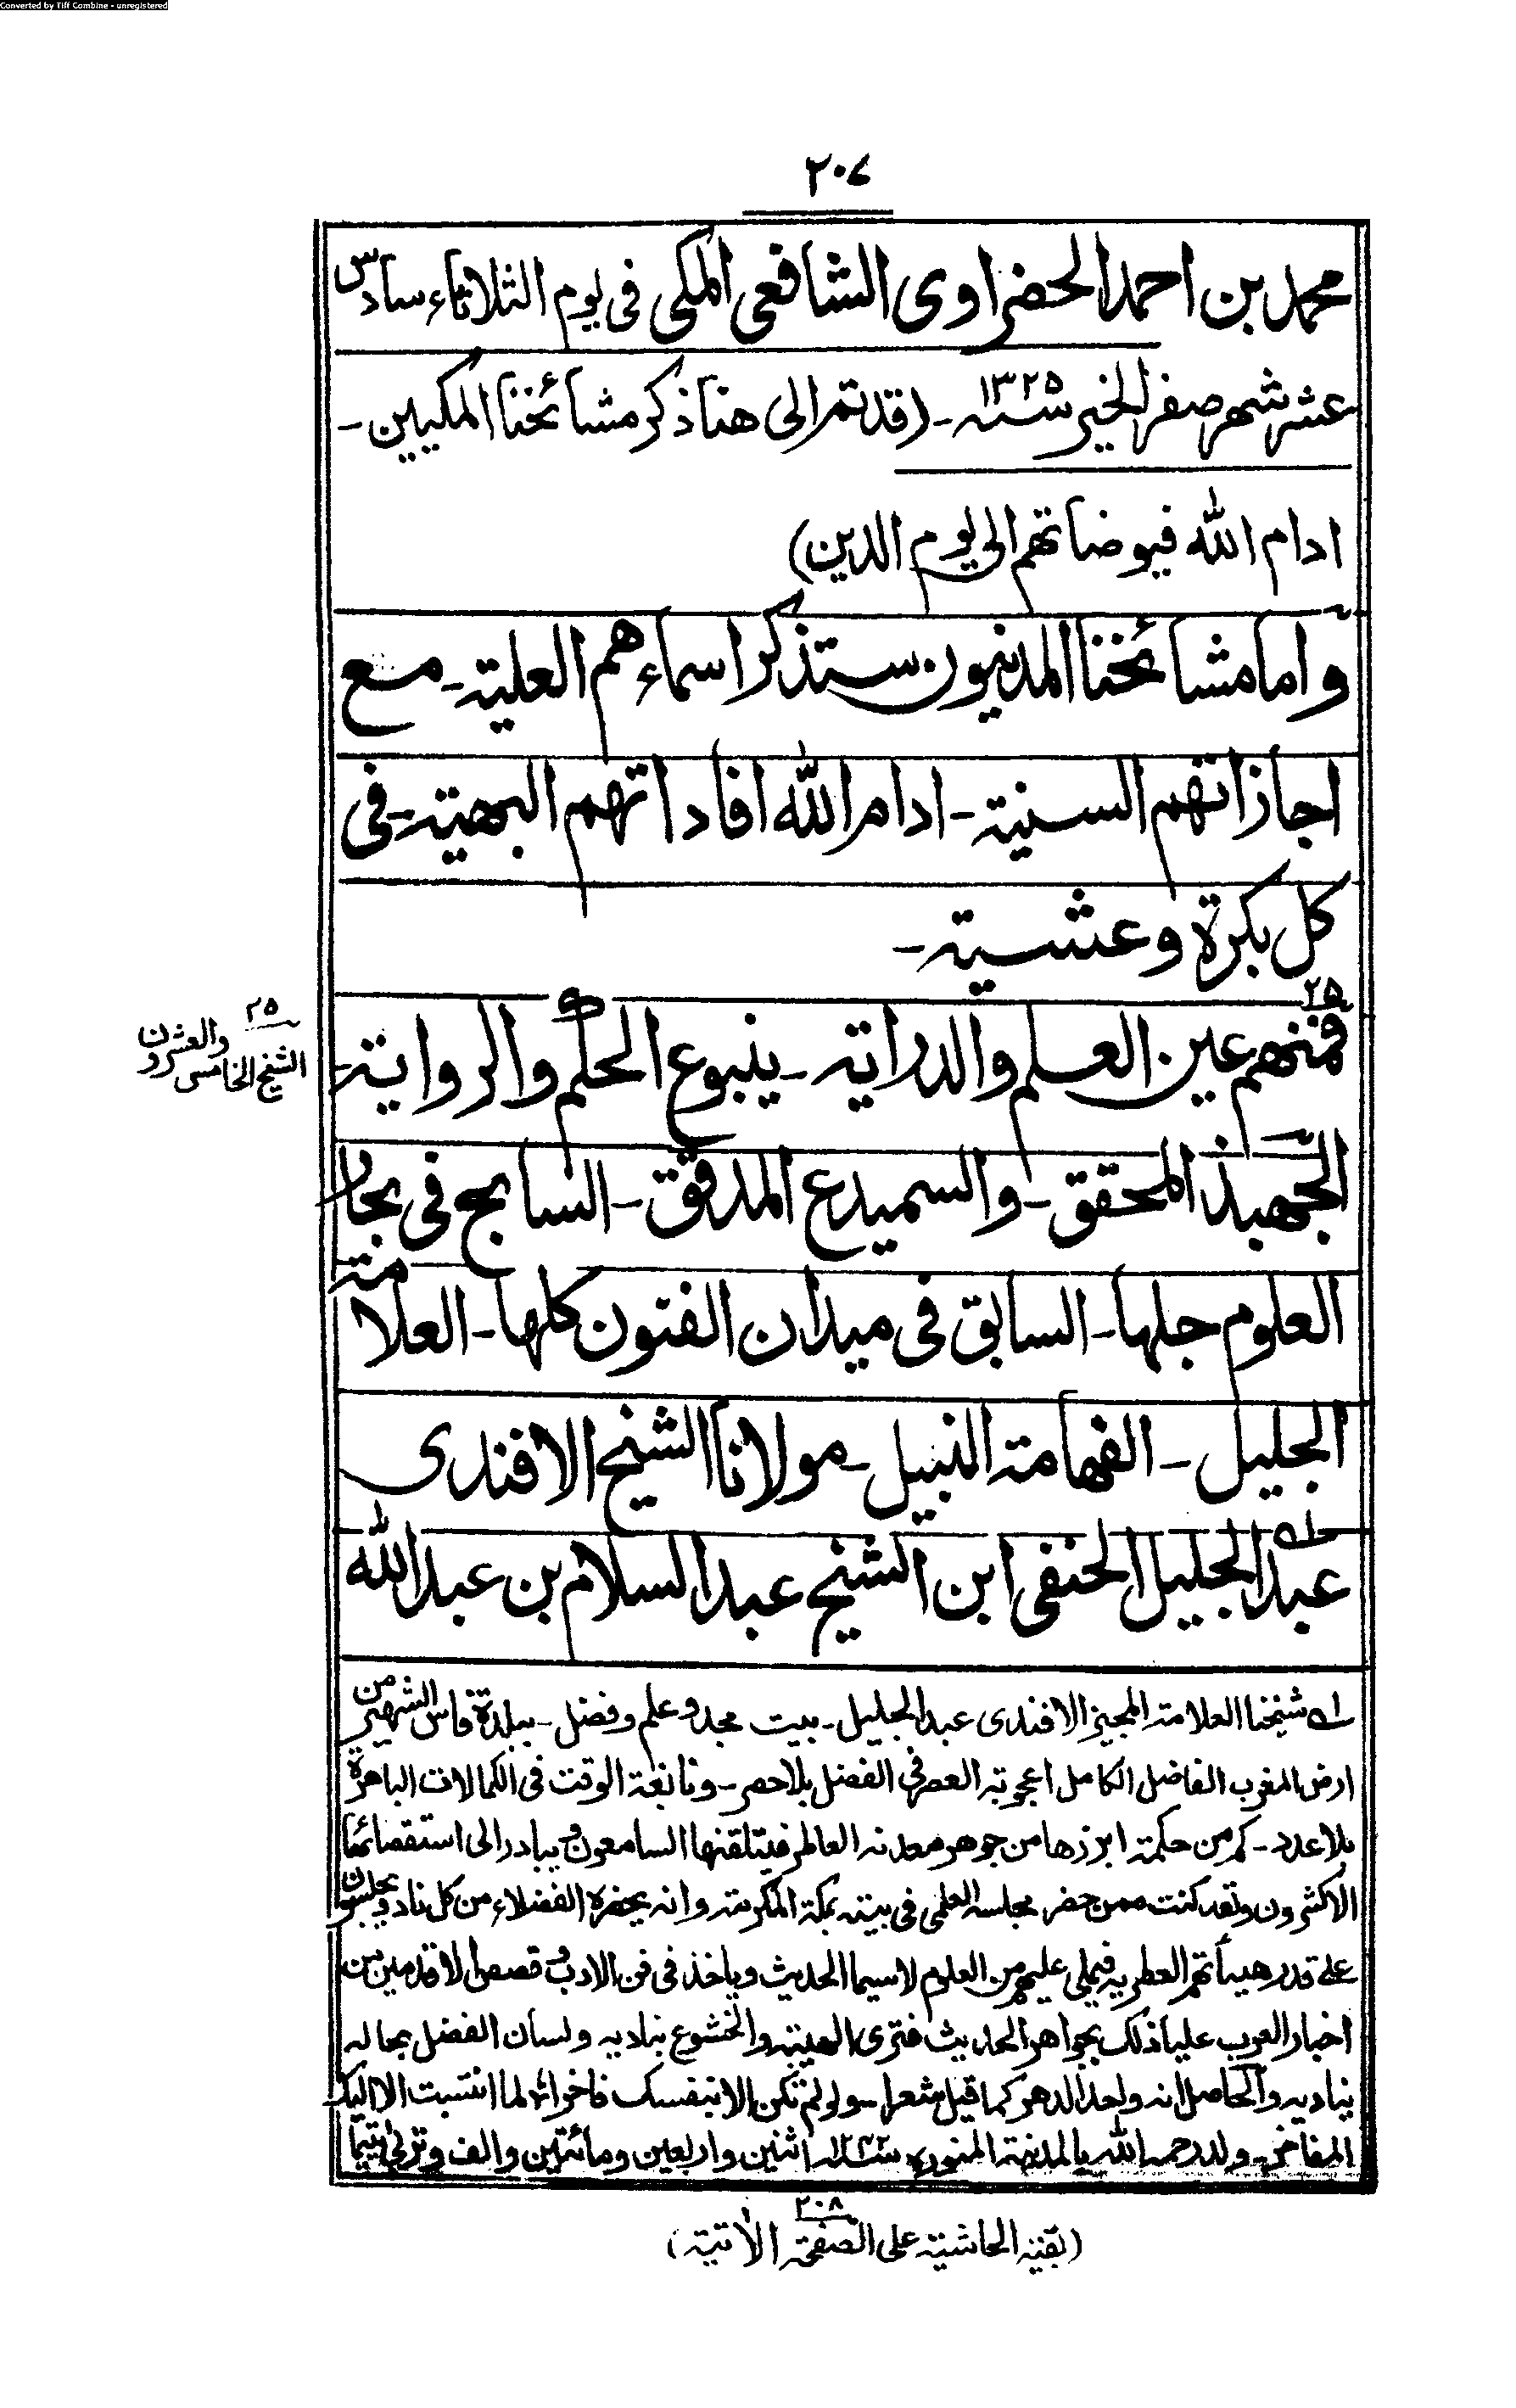 Converted by Tiff Combine - unregistered
٢٠٧
محمد بن احمد الحضراوى الشافعى المكى فى يوم الثلاثاء سادس
عشر شهر صفر الخير سنه ١٣٢٥ - (قد تم الى هنا ذكر مشائخنا المكيين -
ادام الله فيوضاتهم الى يوم الدين)
واما مشائخنا المدنيون ستذكر اسماءهم العلية - مع
اجازاتهم السنية - ادام الله افاداتهم البهية - فى
كل بكرة وعشية -
٢٥
فمنهم عين العلم والدراية - ينبوع الحكم والرواية -
٢٥
الشيخ الخامس والعشرون
الجهبذ المحقق - والسميدع المدقق - السابح فى بحار
العلوم جلها - السابق فى ميدان الفنون كلها - العلامة
الجليل - الفهامة النبيل - مولانا الشيخ الافندى
عبد الجليل الحنفى ابن الشيخ عبد السلام بن عبد الله
له شيخنا العلامة المجيز الافندى عبد الجليل - بيت مجد وعلم وفضل - ببلدة فاس الشهير من
ارض المغرب الفاضل الكامل اعجوبة العصر فى الفضل بلا حصر - ونابغة الوقت فى الكمالات الباهرة
بلا عدد - كم من حكمة ابرزها من جوهر معدنه العالم فيتلقنها السامعون ويبادر الى استقصائها
الاكثرون وقد كنت ممن حضر مجلسه العلمى فى بيته بمكة المكرمة وانه يحضره الفضلاء من كل ناد ويجلسون
على قدر هيئاتهم العطرية فيملى عليهم من العلوم لاسيما الحديث وياخذ فى فن الادب وقصص الاقدمين من
اخبار العرب عليا ذلك بجواهر الحديث فترى الهيبة والخشوع بناديه ولسان الفضل بحاله
يناديه والحاصل انه واحد الدهر كما قيل شعرا - ولو لم تكن الا بنفسك فاخرا ؛ لما انتسبت الا اليك
المفاخر - ولد رحمه الله بالمدينة المنورة سنة ١٢٤٢ اثنين واربعين ومائتين والف وتربى يتيما
(بقية الحاشية على الصفحة ٢٠٨ الآتية)